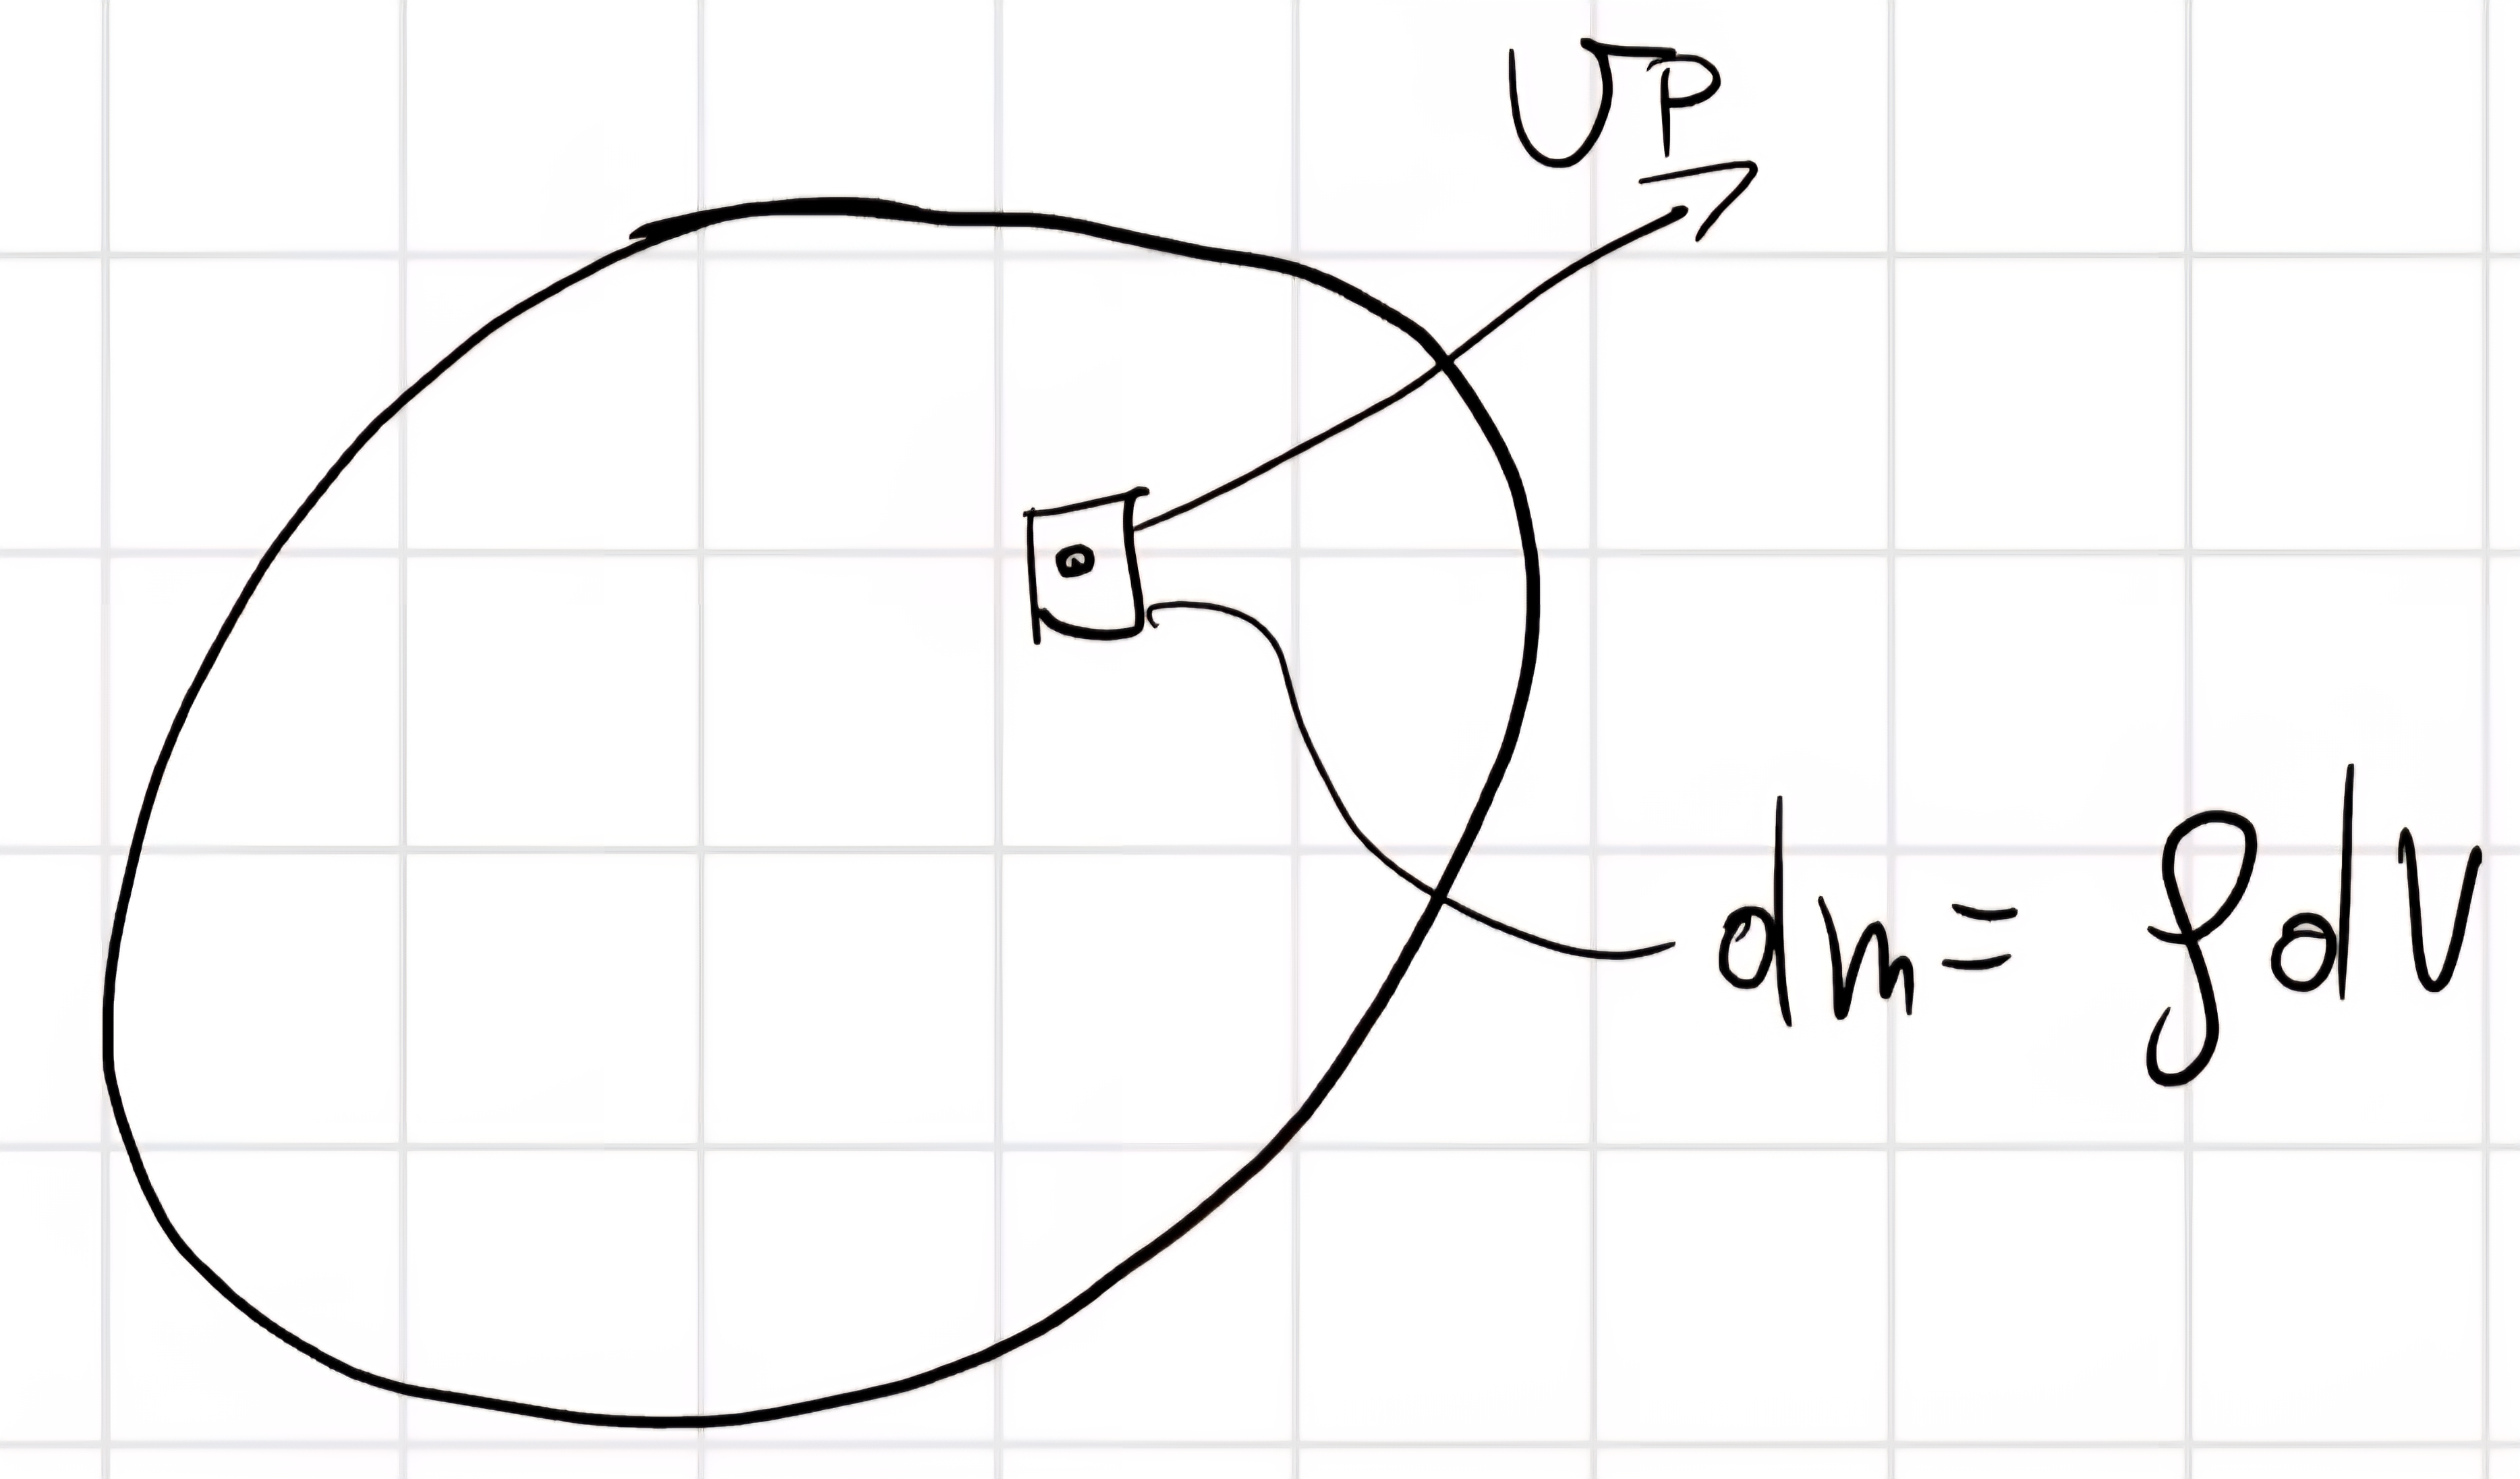 υP
dm = ρdV